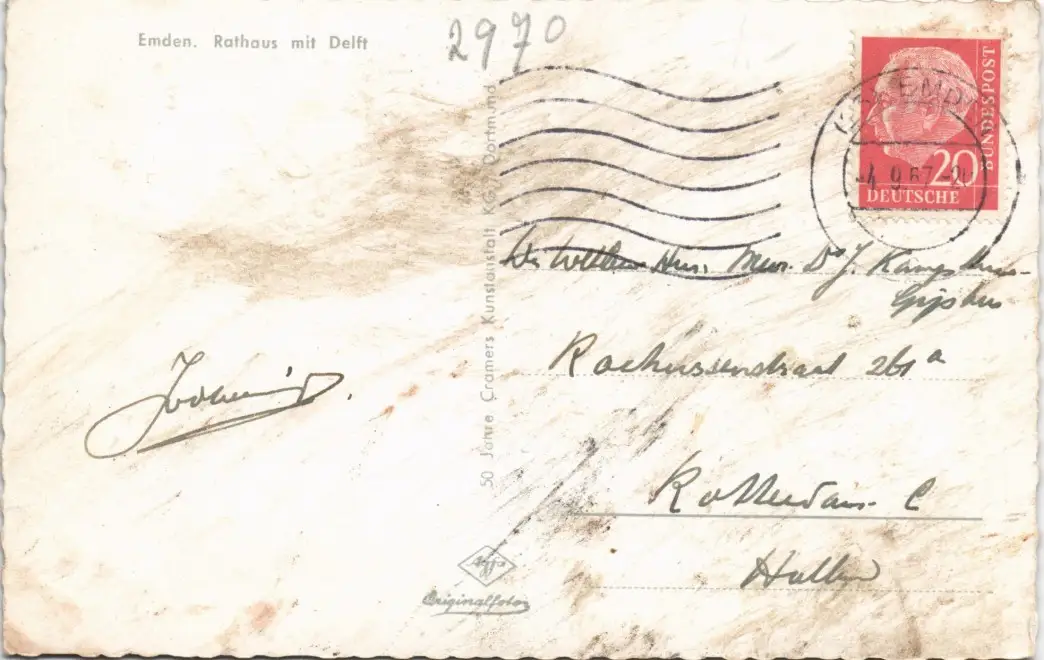 Emden. Rathaus mit Delft
2970
BUNDESPOST
20
DEUTSCHE
EMD
-4.9.57-20
50 Jahre Cramers Kunstanstalt KG, Dortmund
Mevr. Dr J. Kamphuis-
Gijsben
Rochussenstraat 261a
Rotterdam C
Holland
Agfa
Originalfotos